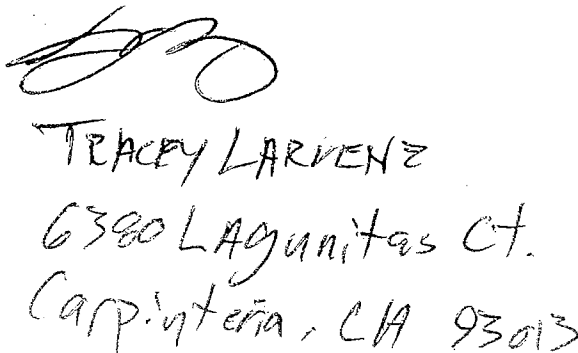 TRACEY LARVENZ
6380 LAgunitas Ct.
Carpinteria, CA 93013